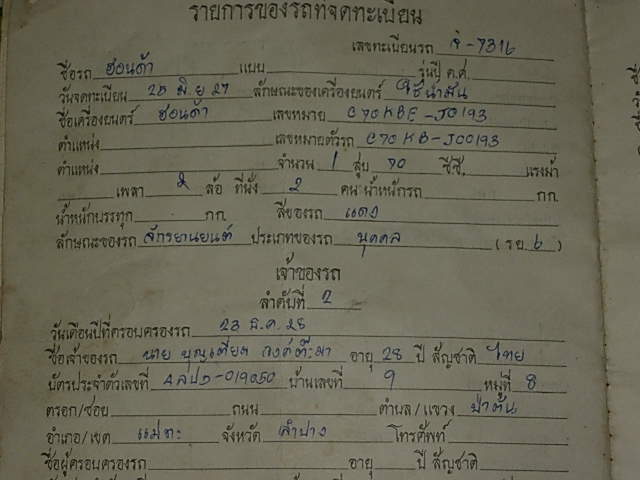 รายการของรถที่จดทะเบียน
เลขทะเบียนรถ -7316
ชื่อรถ ฮอนด้า แบบ รุ่นปี ค.ศ.
วันจดทะเบียน 25 มิ.ย 27 ลักษณะของเครื่องยนตร์ ใช้น้ำมัน
ชื่อเครื่องยนตร์ ฮอนด้า เลขหมาย C70KBE-J0193
ตำแหน่ง เลขหมายตัวรถ C70KB-J00193
ตำแหน่ง จำนวน 1 สูบ 70 ซีซี. แรงม้า
เพลา 2 ล้อ ที่นั่ง 2 คน น้ำหนักรถ กก.
น้ำหนักบรรทุก กก. สีของรถ แดง
ลักษณะของรถ จักรยานยนต์ ประเภทของรถ บุคคล (รย. 6)
เจ้าของรถ
ลำดับที่ 2
วันเดือนปีที่ครอบครองรถ 23 28
ชื่อเจ้าของรถ นาย อายุ 28 ปี สัญชาติ ไทย
บัตรประจำตัวเลขที่ -019050 บ้านเลขที่ 9 หมู่ที่ 8
ตรอก/ซอย ถนน ตำบล/แขวง ป่าตัน
อำเภอ/เขต แม่ทะ จังหวัด ลำปาง โทรศัพท์
ชื่อผู้ครอบครองรถ อายุ ปี สัญชาติ